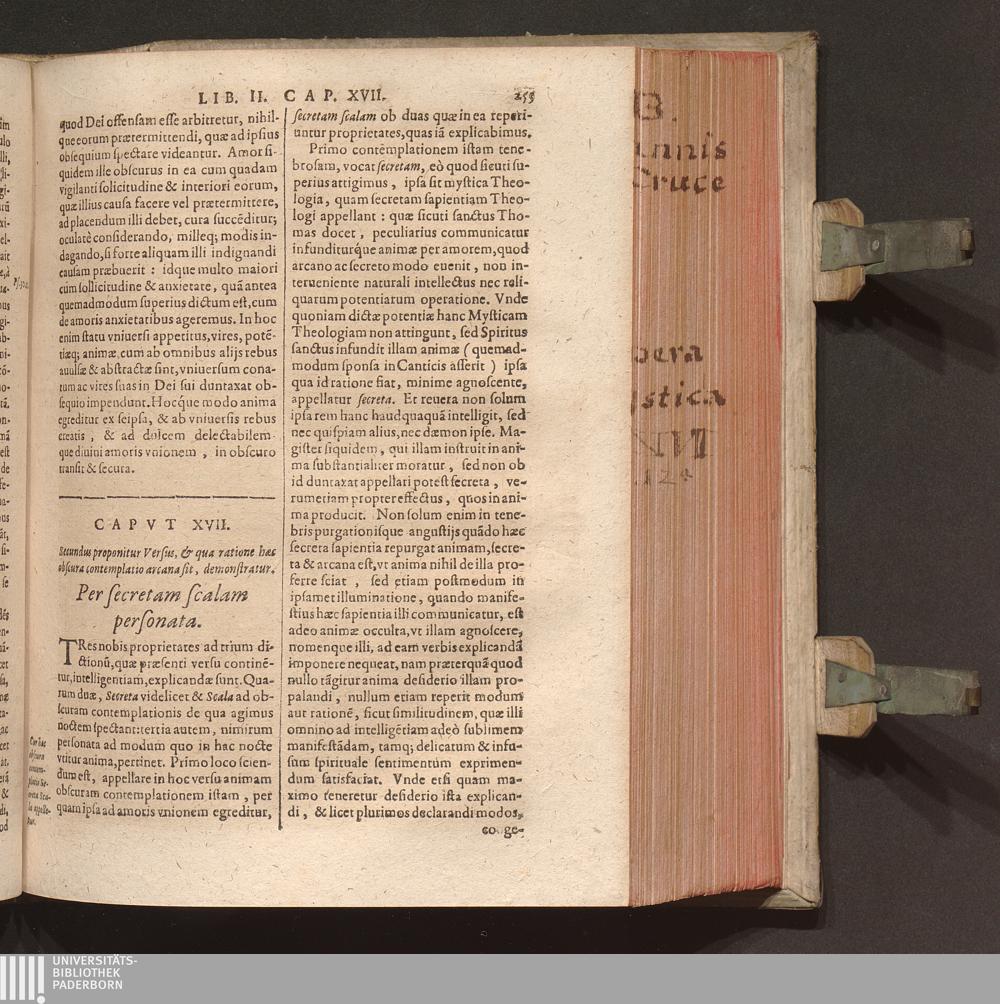 LIB. II. CAP. XVII. 253
quod Dei offensam esse arbitretur, nihil-
que eorum prætermittendi, quæ ad ipsius
obsequium spectare videantur. Amor si-
quidem ille obscurus in ea cum quadam
vigilanti solicitudine & interiori eorum,
quæ illius causa facere vel prætermittere,
ad placendum illi debet, cura succēditur;
oculatè considerando, milleq; modis in-
dagando, si forte aliquam illi indignandi
causam præbuerit : idque multo maiori
cùm sollicitudine & anxietate, quā antea
quemadmodum superius dictum est, cum
de amoris anxietatibus ageremus. In hoc
enim statu vniuersi appetitus, vires, potē-
tiæq; animæ, cum ab omnibus alijs rebus
auulsæ & abstractæ sint, vniuersum cona-
tum ac vires suas in Dei sui duntaxat ob-
sequio impendunt. Hocq́ue modo anima
egreditur ex seipsa, & ab vniuersis rebus
creatis , & ad dolcem delectabilem-
que diuini amoris vnionem , in obscuro
transit & secura.
CAPVT XVII.
Secundus proponitur Versus, & qua ratione hæc
obscura contemplatio arcana sit, demonstratur.
Per secretam scalam
personata.
TRes nobis proprietates ad trium di-
ctionū, quæ præsenti versu continē-
tur, intelligentiam, explicandæ sunt. Qua-
rum duæ, Secreta videlicet & Scala ad ob-
scuram contemplationis de qua agimus
noctem spectant: tertia autem, nimirum
personata ad modum quo in hac nocte
vtitur anima, pertinet. Primo loco scien-
dum est, appellare in hoc versu animam
obscuram contemplationem istam , per
quam ipsa ad amoris vnionem egreditur,
Cur hæc
obscura
contem-
platio Se-
creta Sca-
la appelle-
tur.
secretam scalam ob duas quæ in ea reperi-
untur proprietates, quas iā explicabimus.
Primo contēmplationem istam tene-
brosam, vocat secretam, eò quod sicuti su-
perius attigimus , ipsa sit mystica Theo-
logia, quam secretam sapientiam Theo-
logi appellant : quæ sicuti sanctus Tho-
mas docet , peculiarius communicatur
infunditurq́ue animæ per amorem, quod
arcano ac secreto modo euenit , non in-
terueniente naturali intellectus nec reli-
quarum potentiarum operatione. Vnde
quoniam dictæ potentiæ hanc Mysticam
Theologiam non attingunt, sed Spiritus
sanctus infundit illam animæ ( quemad-
modum sponsa in Canticis asserit ) ipsa
qua id ratione fiat, minime agnoscente,
appellatur secreta. Et reuera non solum
ipsa rem hanc haudquaquā intelligit, sed
nec quispiam alius, nec dæmon ipse. Ma-
gister siquidem , qui illam instruit in ani-
ma substantialiter moratur , sed non ob
id duntaxat appellari potest secreta , ve-
rumetiam propter effectus , quos in ani-
ma producit. Non solum enim in tene-
bris purgationisque angustijs quādo hæc
secreta sapientia repurgat animam, secre-
ta & arcana est, vt anima nihil de illa pro-
ferre sciat , sed etiam postmodum in
ipsamet illuminatione , quando manife-
stius hæc sapientia illi communicatur, est
adeo animæ occulta, vt illam agnoscere,
nomenque illi, ad eam verbis explicandā
imponere nequeat, nam præterquā quod
nullo tāgitur anima desiderio illam pro-
palandi , nullum etiam reperit modum
aut rationē, sicut similitudinem, quæ illi
omnino ad intelligētiam adeò sublimem
manifestādam, tamq; delicatum & infu-
sum spirituale sentimentum exprimen-
dum satisfaciat. Vnde etsi quam ma-
ximo teneretur desiderio ista explican-
di , & licet plurimos declarandi modos,
conge-
B.
annis
Cruce
pera
ystica
XVII
124
UNIVERSITÄTS-
BIBLIOTHEK
PADERBORN